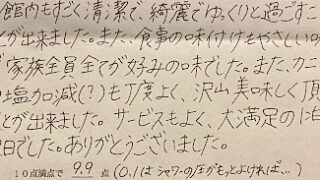 館内もすごく清潔で、綺麗でゆっくりと過ごすこ
とが出来ました。また、食事の味付けもやさしいの
で家族全員全てが好みの味でした。また、カニ
の塩加減(?)も丁度よく、沢山美味しく頂
とが出来ました。サービスもよく、大満足の1泊
2日でした。ありがとうございました。
10点満点で 9.9 点 (0.1はシャワーの圧がもっとよければ…)